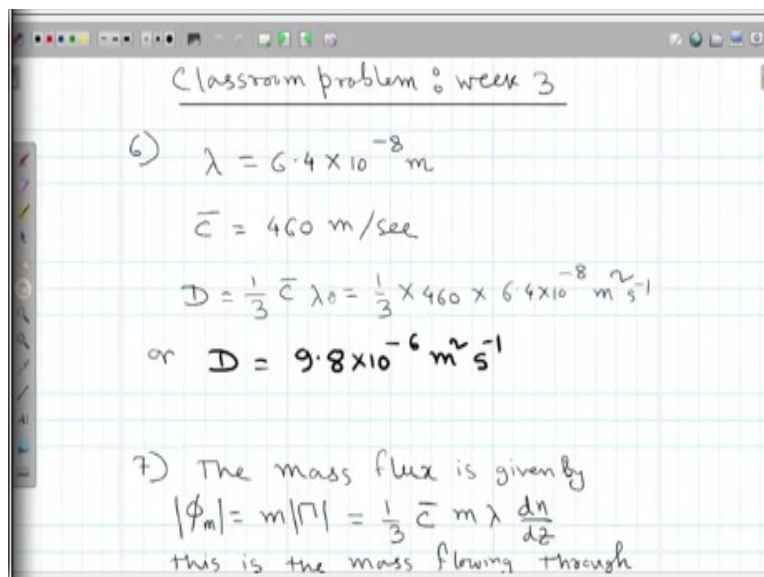 Classroom problem : week 3
6) λ = 6.4 × 10⁻⁸ m
c̄ = 460 m/sec
D = 1/3 c̄ λ₀ = 1/3 × 460 × 6.4×10⁻⁸ m² s⁻¹
or D = 9.8×10⁻⁶ m² s⁻¹
7) The mass flux is given by
|ϕₘ| = m|Γ| = 1/3 c̄ m λ dn/dz
this is the mass flowing through